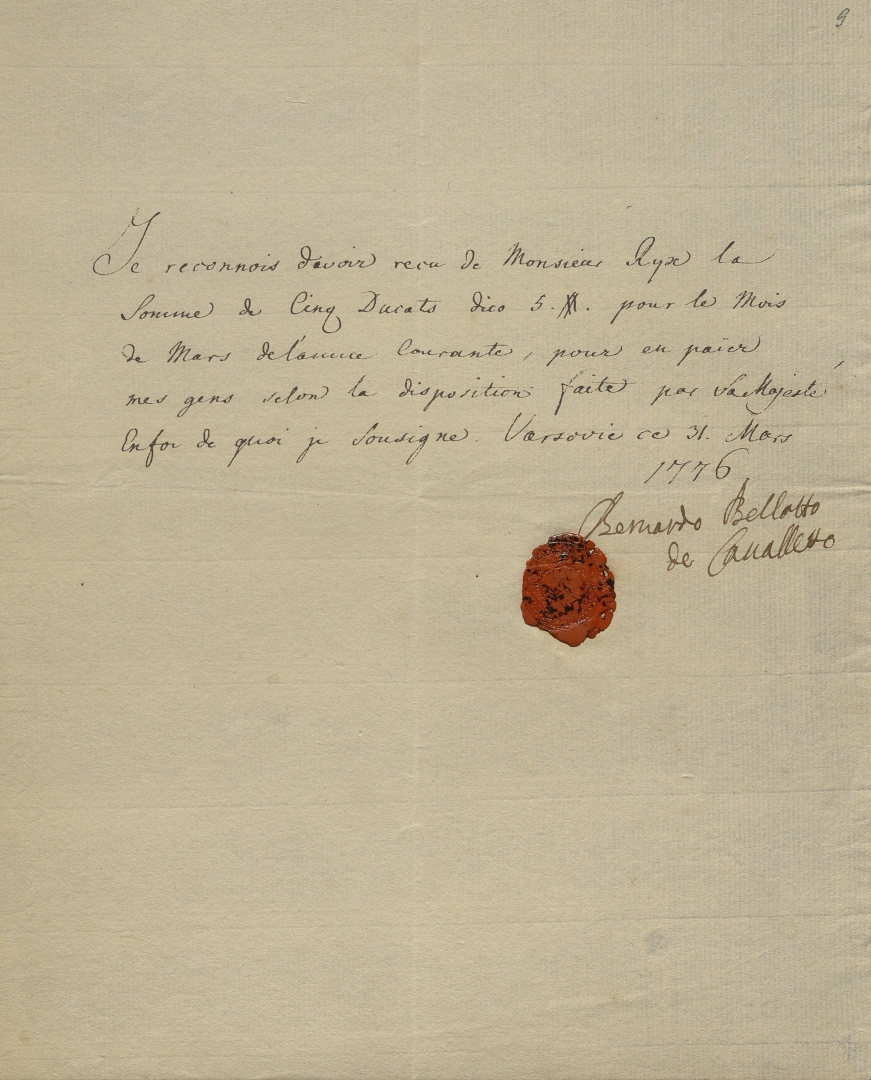 9
Je reconnois d'avoir recu de Monsieur Ryx la
Somme de Cinq Ducats dico 5. #. pour le Mois
de Mars de l'annee Courante, pour en païer
mes gens selon la disposition faite par sa Majesté,
Enfoi de quoi je Sousigne. Varsovie ce 31. Mars
1776.
Bernardo Bellotto
de Canalletto